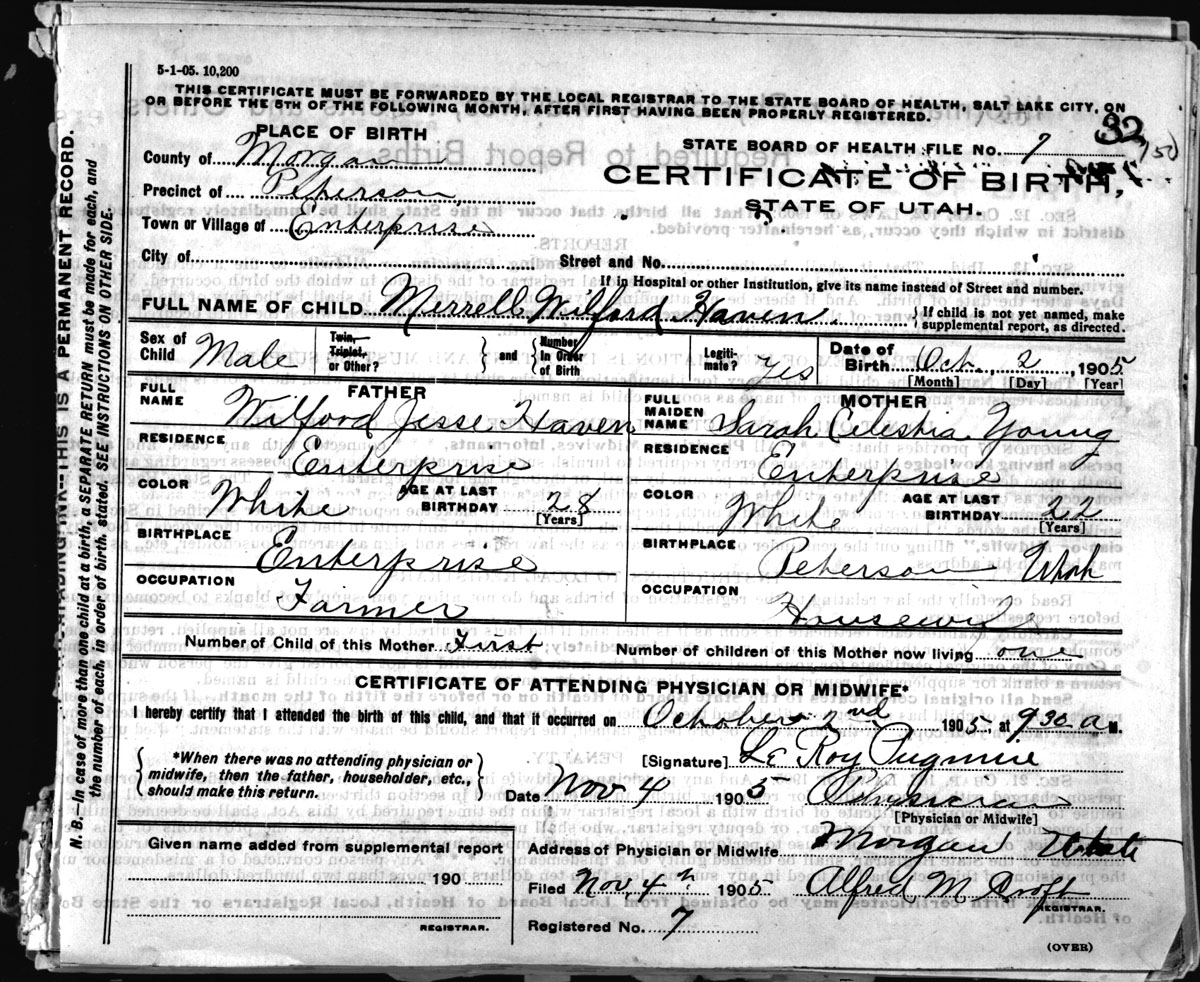 5-1-05. 10,200
THIS CERTIFICATE MUST BE FORWARDED BY THE LOCAL REGISTRAR TO THE STATE BOARD OF HEALTH, SALT LAKE CITY, ON
OR BEFORE THE 5TH OF THE FOLLOWING MONTH, AFTER FIRST HAVING BEEN PROPERLY REGISTERED.
PLACE OF BIRTH
County of Morgan
Precinct of Peterson
Town or Village of Enterprise
City of
82
150
STATE BOARD OF HEALTH FILE NO. 7
CERTIFICATE OF BIRTH,
STATE OF UTAH.
Street and No.
If in Hospital or other Institution, give its name instead of Street and number.
FULL NAME OF CHILD Merrell Wilford Haven. { If child is not yet named, make
supplemental report, as directed.
Sex of Child Male
Twin, Triplet, or Other? } and { Number In Order of Birth
Legiti- mate? Yes
Date of Birth Oct. 2, 1905
[Month] [Day] [Year]
FATHER
FULL NAME Wilford Jesse Haven
RESIDENCE
Enterprise
COLOR White AGE AT LAST BIRTHDAY 28
[Years]
BIRTHPLACE
Enterprise
OCCUPATION
Farmer
MOTHER
FULL MAIDEN NAME Sarah Celestia Young
RESIDENCE
Enterprise
COLOR White AGE AT LAST BIRTHDAY 22
[Years]
BIRTHPLACE
Peterson Utah
OCCUPATION
Housewife
Number of Child of this Mother First Number of children of this Mother now living one
CERTIFICATE OF ATTENDING PHYSICIAN OR MIDWIFE*
I hereby certify that I attended the birth of this child, and that it occurred on October 2nd 1905, at 930 a M.
{ *When there was no attending physician or
midwife, then the father, householder, etc.,
should make this return. }
[Signature] Le Roy Pugmire
Date Nov 4 1905 Physician
[Physician or Midwife]
Given name added from supplemental report
190
REGISTRAR.
Address of Physician or Midwife Morgan Utah
Filed Nov. 4th 1905 Alfred M Croft
REGISTRAR.
Registered No. 7
(OVER)
THIS IS A PERMANENT RECORD.
N. B.—In case of more than one child at a birth, a SEPARATE RETURN must be made for each, and
the number of each, in order of birth, stated. SEE INSTRUCTIONS ON OTHER SIDE.